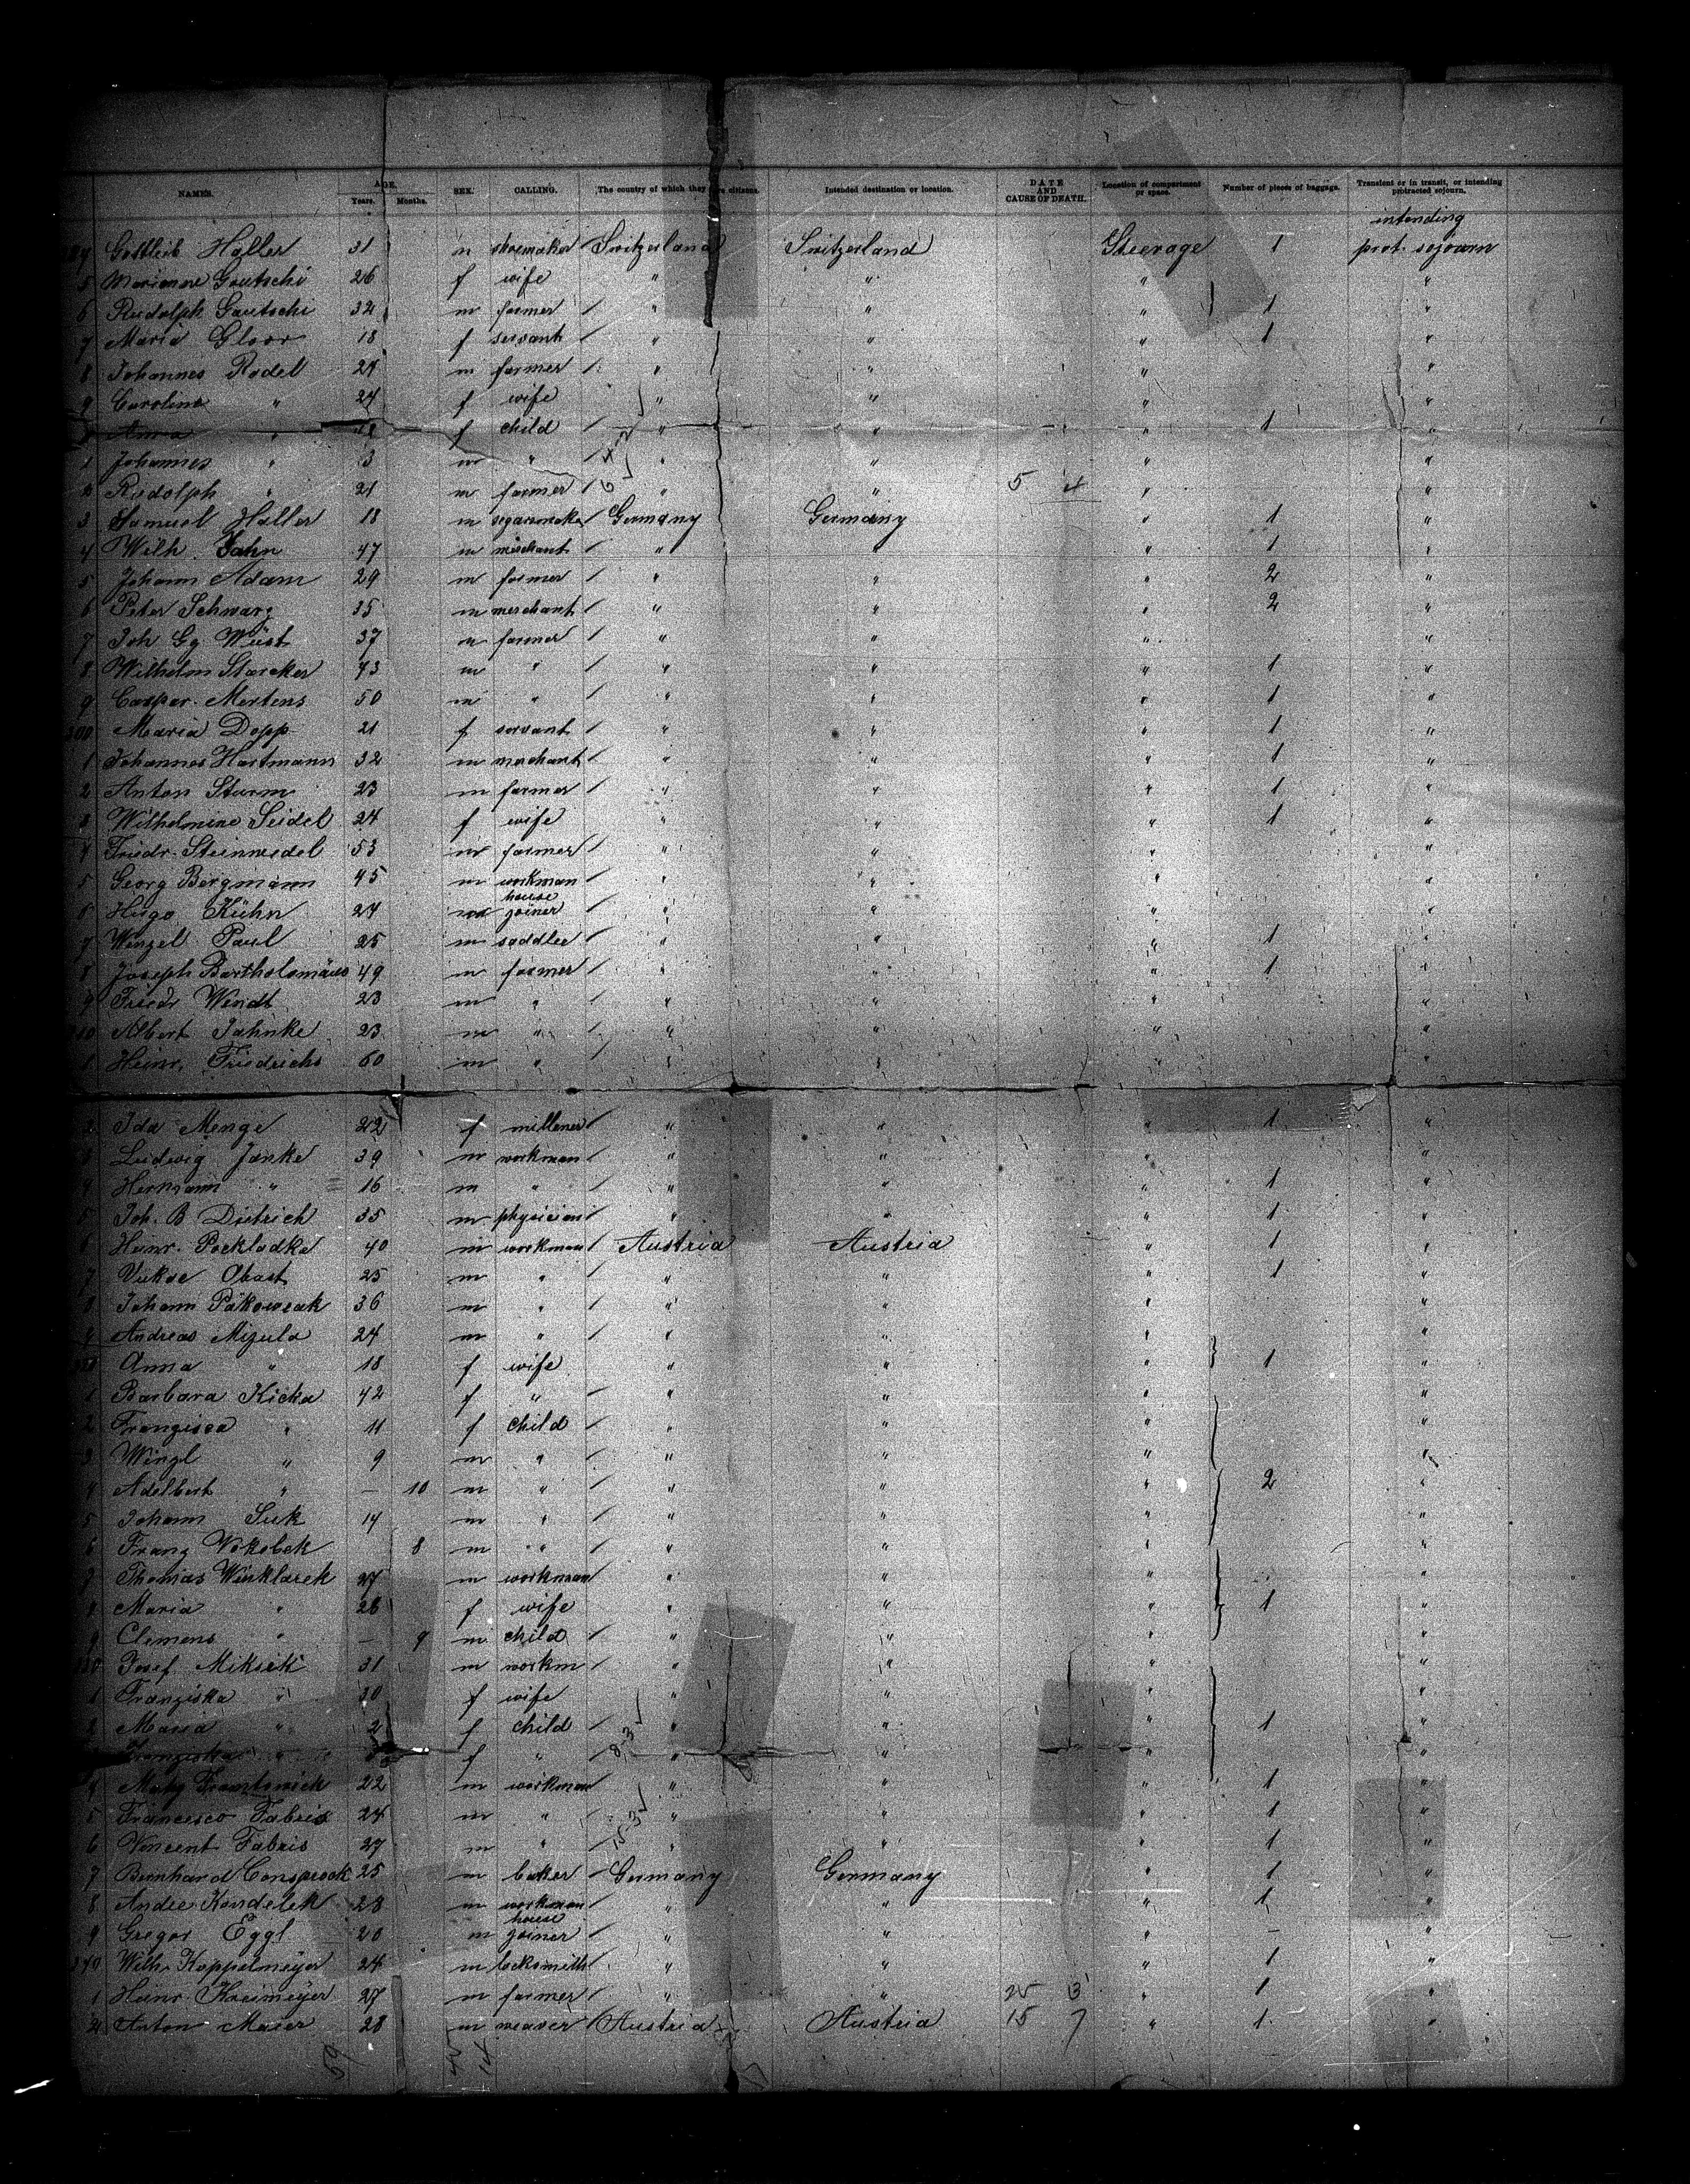 NAMES. AGE. SEX. CALLING. The country of which they are citizens. Intended destination or location. DATE AND CAUSE OF DEATH. Location of compartment or space. Number of pieces of baggage. Transient or in transit, or intending protracted sojourn.
Years. Months.
intending
Gottlieb Haller 31 m shoemaker Switzerland Switzerland Steerage 1 prot. sojourn
5 Marianne Gautschi 26 f wife " " " "
6 Rudolph Gautschi 32 m farmer " " " 1 "
7 Maria Gloor 18 f servant " " " 1 "
8 Johannes Rodel 24 m farmer " " " "
9 Carolina " 24 f wife " " " "
Anna " f child " " " 1 "
1 Johannes " 3 m " " " " "
2 Rudolph " 21 m farmer " " 5 4 " "
3 Samuel Haller 18 m segarmaker Germany Germany " 1 "
4 Wilh. Jahn 47 m merchant " " " 1 "
5 Johann Adam 29 m farmer " " " 2 "
6 Peter Schwarz 35 m merchant " " " 2 "
7 Joh Gg Wüst 37 m farmer " " " "
8 Wilhelm Starcker 43 m " " " " 1 "
9 Caspar Mertens 50 m " " " " 1 "
300 Maria Dopp 21 f servant " " " 1 "
1 Johannes Hartmann 32 m merchant " " " 1 "
2 Anton Sturm 23 m farmer " " " 1 "
3 Wilhelmine Seidel 24 f wife " " " 1 "
4 Friedr. Steinwedel 53 m farmer " " " "
5 Georg Bergmann 45 m workman " " " "
6 Hugo Kühn 24 m house joiner " " " "
7 Wenzel Paul 25 m saddler " " " 1 "
8 Joseph Bartholomäus 49 m farmer " " " 1 "
9 Friedr Wendt 23 m " " " " "
310 Albert Jahnke 23 m " " " " "
1 Heinr. Friedrichs 60 m " " " "
2 Ida Menge 22 f milliner " " " 1 "
3 Ludwig Janke 39 m workman " " " "
4 Hermann " 16 m " " " " 1 "
5 Joh. B Dietrich 35 m physician " " " 1 "
6 Heinr. Pockladka 40 m workman Austria Austria " 1 "
7 Obast 25 m " " " " 1 "
8 Johann 36 m " " " " "
9 Andreas Mizula 24 m " " " " "
320 Anna " 18 f wife " " " 1 "
1 Barbara Kicka 42 f " " " " "
2 Franzisca " 11 f child " " " "
3 Wenzl " 9 m " " " " "
4 Adelbert " — 10 m " " " " 2 "
5 Johann Suk 14 m " " " " "
6 Franz 8 m " " " " "
7 Thomas Winklarek 27 m workman " " " "
8 Maria " 26 f wife " " " 1 "
9 Clemens " — 9 m child " " " "
330 Josef Miksik 31 m workm " " " "
1 Franziska " 30 f wife " " " "
2 Maria " 2 f child " " " 1 "
Franziska " f " " " " "
4 22 m workman " " " 1 "
5 Francesco Fabris 24 m " " " " 1 "
6 Vincent Fabris 27 m " " " " 1 "
7 Bernhard 25 m baker Germany Germany " 1 "
8 Kondelek 28 m workman " " " 1 "
9 Gregor Eggl 20 m house joiner " " " – "
340 Wilh. Koppelmeyer 24 m locksmith " " " 1 "
1 Heinr. 27 m farmer " " 25 3 " 1 "
2 Anton Maier 28 m weaver Austria Austria 15 7 " 1 "
59